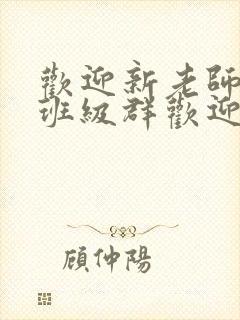 歡迎新老師
班級群歡迎
顧仲陽